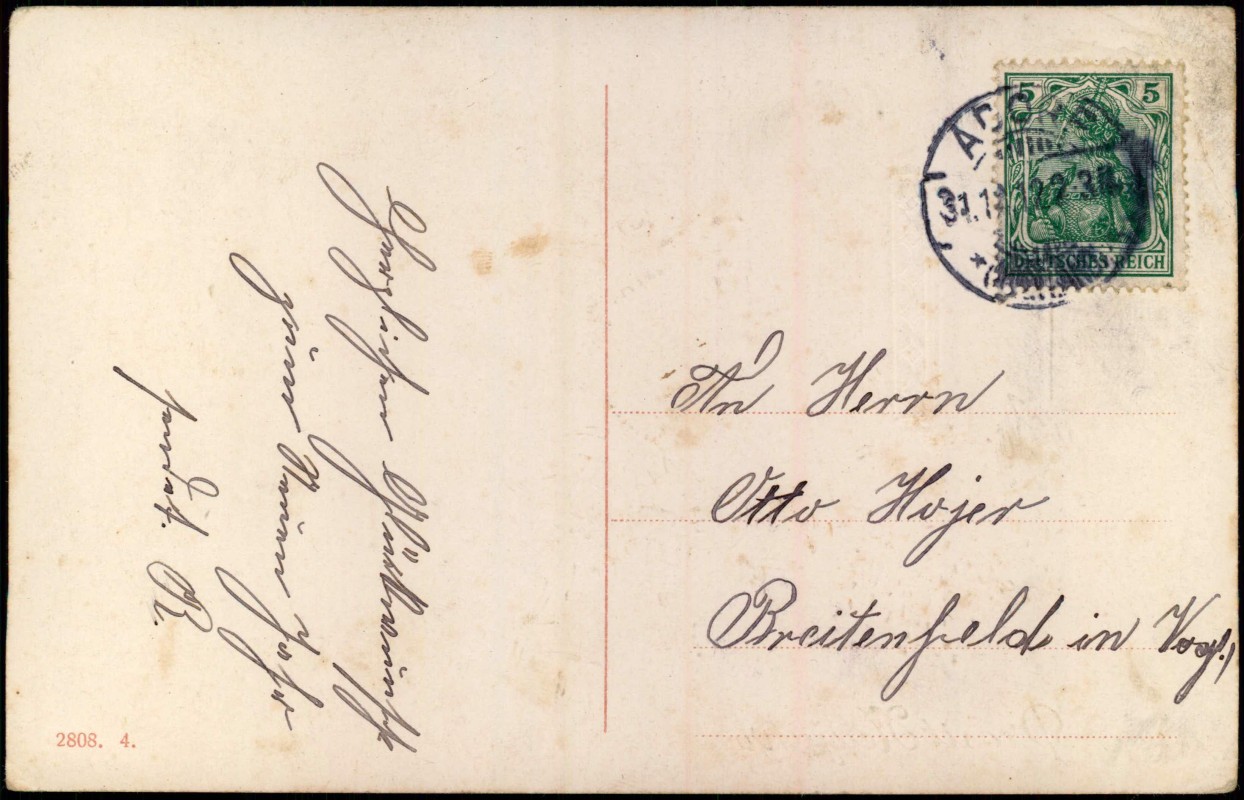 Herzlichen Glückwunsch
zum Neuen Jahre
sendet R.
2808. 4.
5 5
DEUTSCHES REICH
31.12.
An Herrn
Otto Hojer
Breitenfeld in Vogl.